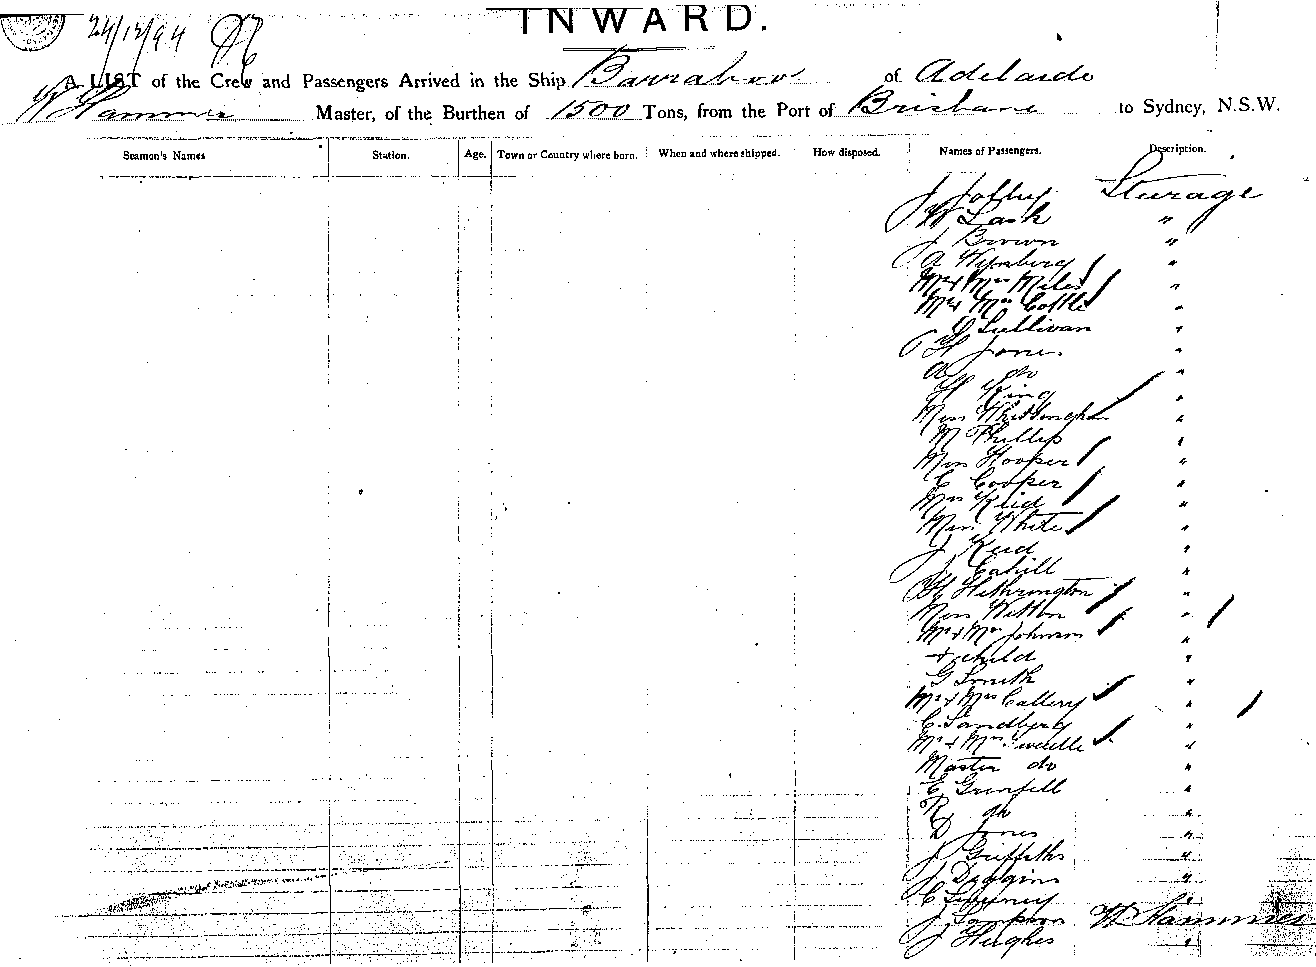 INWARD.
24/12/94
A LIST of the Crew and Passengers Arrived in the Ship Barrabool of Adelaide
W Hammer Master, of the Burthen of 1500 Tons, from the Port of Brisbane to Sydney, N.S.W.
Seamen's Names Station. Age. Town or Country where born. When and where shipped. How disposed. Names of Passengers. Description.
J Jolley Sturage
W Lash "
J Brown "
A Wynberg "
Mr & Mrs Miles "
Mr & Mrs Cottle "
O Sullivan "
H Jones "
A do "
H King "
Miss Whittingham "
M Phillip "
Miss Hooper "
C Cooper "
Mrs Reid "
Miss White "
J Reid "
J Cahill "
Hetherington "
Miss Witton "
Mr & Mrs Johnson "
+ child "
G Smith "
Mr & Mrs Callery "
C. Sandberg "
Mr & Mrs "
Master do "
E Grenfell "
R do "
D Jones "
J Griffiths "
J Duggins "
C "
J Sampson W Hammer
J Hughes "